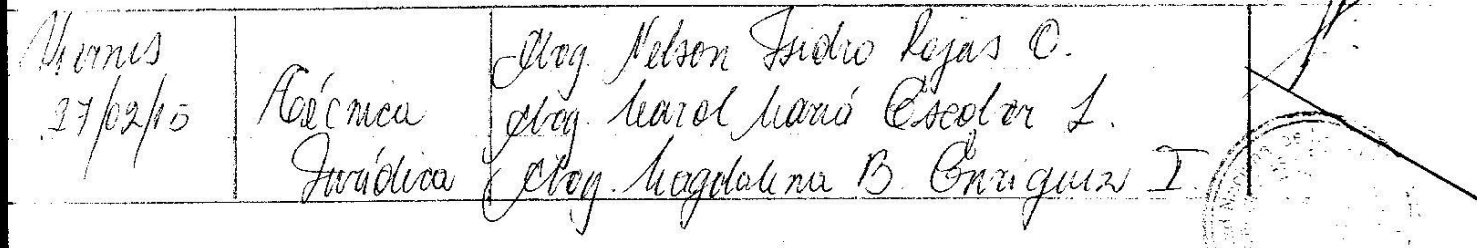 Viernes
27/02/15
Técnica
Jurídica
Abog. Nelson Isidro Rojas O.
Abog. Marol María Escolar L.
Abog. Magdalena B. Enriquez I.